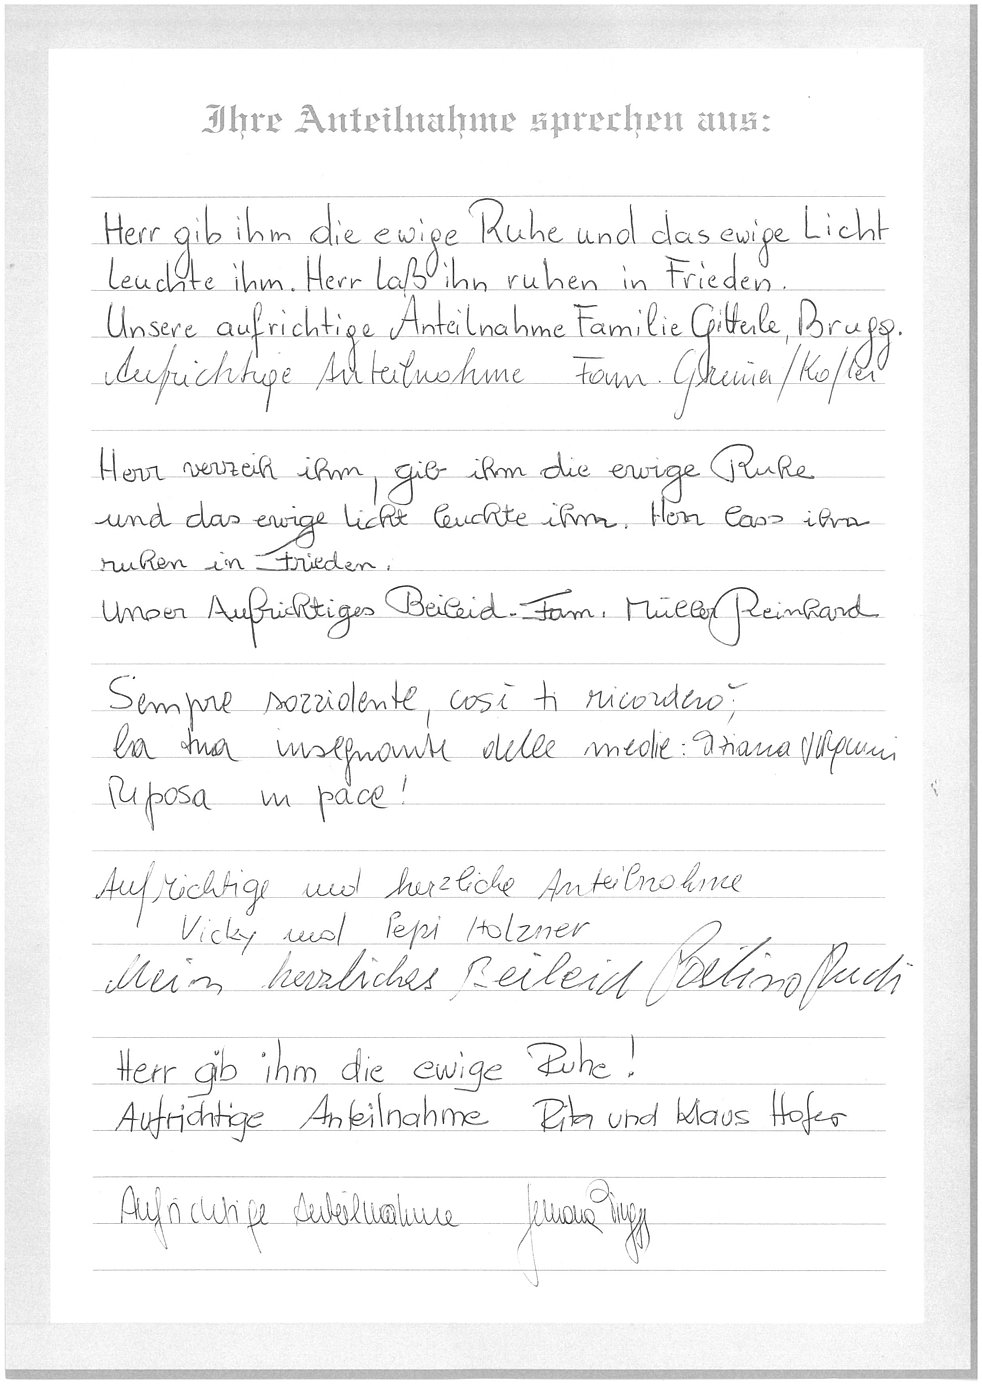 Ihre Anteilnahme sprechen aus:
Herr gib ihm die ewige Ruhe und das ewige Licht
leuchte ihm. Herr laß ihn ruhen in Frieden.
Unsere aufrichtige Anteilnahme Familie Gitterle, Brugg.
Aufrichtige Anteilnahme Fam. /Kofler
Herr verzeih ihm, gib ihm die ewige Ruhe
und das ewige licht leuchte ihm. Herr lass ihn
ruhen in Frieden.
Unser Aufrichtiges Beileid. Fam. Müller Reinhard
Sempre sorridente, così ti ricorderò,
la tua insegnante delle medie: Tiziana
Riposa in pace!
Aufrichtige und herzliche Anteilnahme
Vicky und Pepi Holzner
Mein herzliches Beileid Rudi
Herr gib ihm die ewige Ruhe!
Aufrichtige Anteilnahme Rita und Klaus Hofer
Aufrichtige Anteilnahme